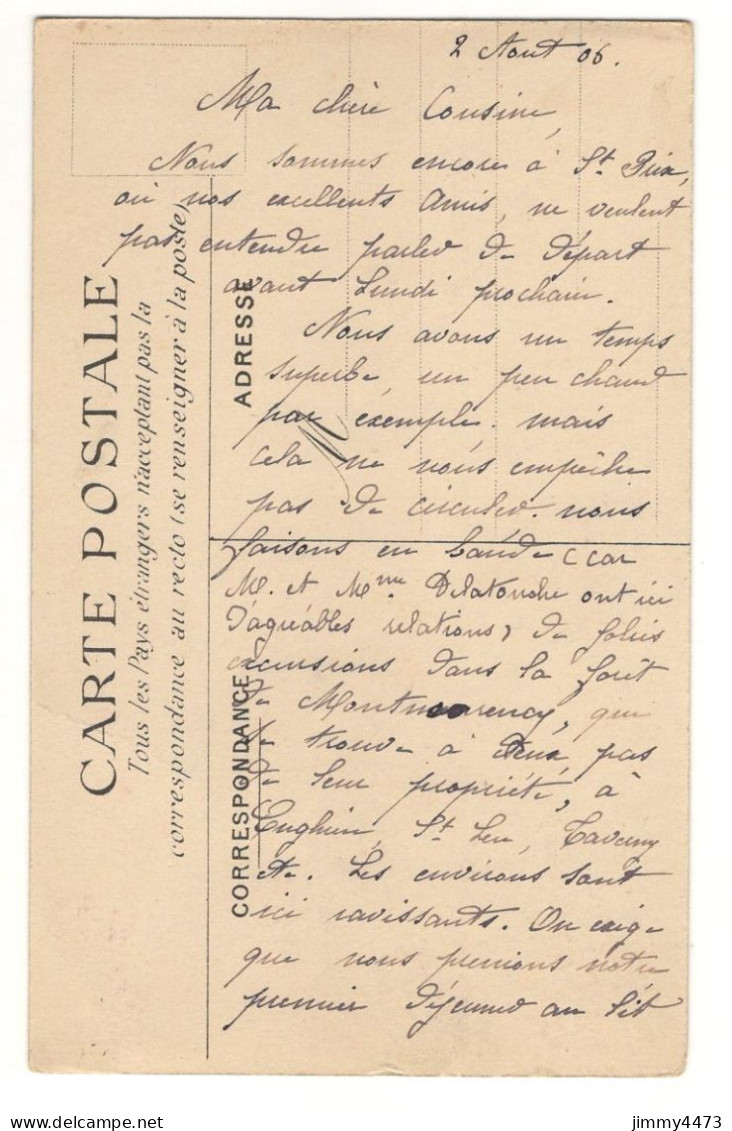 2 Aout 06.
Ma chère Cousine,
Nous sommes encore à St. Prix,
où nos excellents Amis, ne veulent
pas entendre parler de départ
avant Lundi prochain.
Nous avons un temps
superbe, un peu chaud
par exemple. mais
cela ne nous empêche
pas de circuler. nous
faisons en bande (car
M. et Mme Delatouche ont ici
d'agréables relations) de jolies
excursions dans la forêt
de Montmorency, qui
se trouve à deux pas
de leur propriété, à
Enghien, St Leu, Taverny
etc. Les environs sont
ici ravissants. On exige
que nous prenions notre
premier déjeuner au lit
CARTE POSTALE
Tous les Pays étrangers n'acceptant pas la
correspondance au recto (se renseigner à la poste)
ADRESSE
CORRESPONDANCE
delcampe.net
jimmy4473